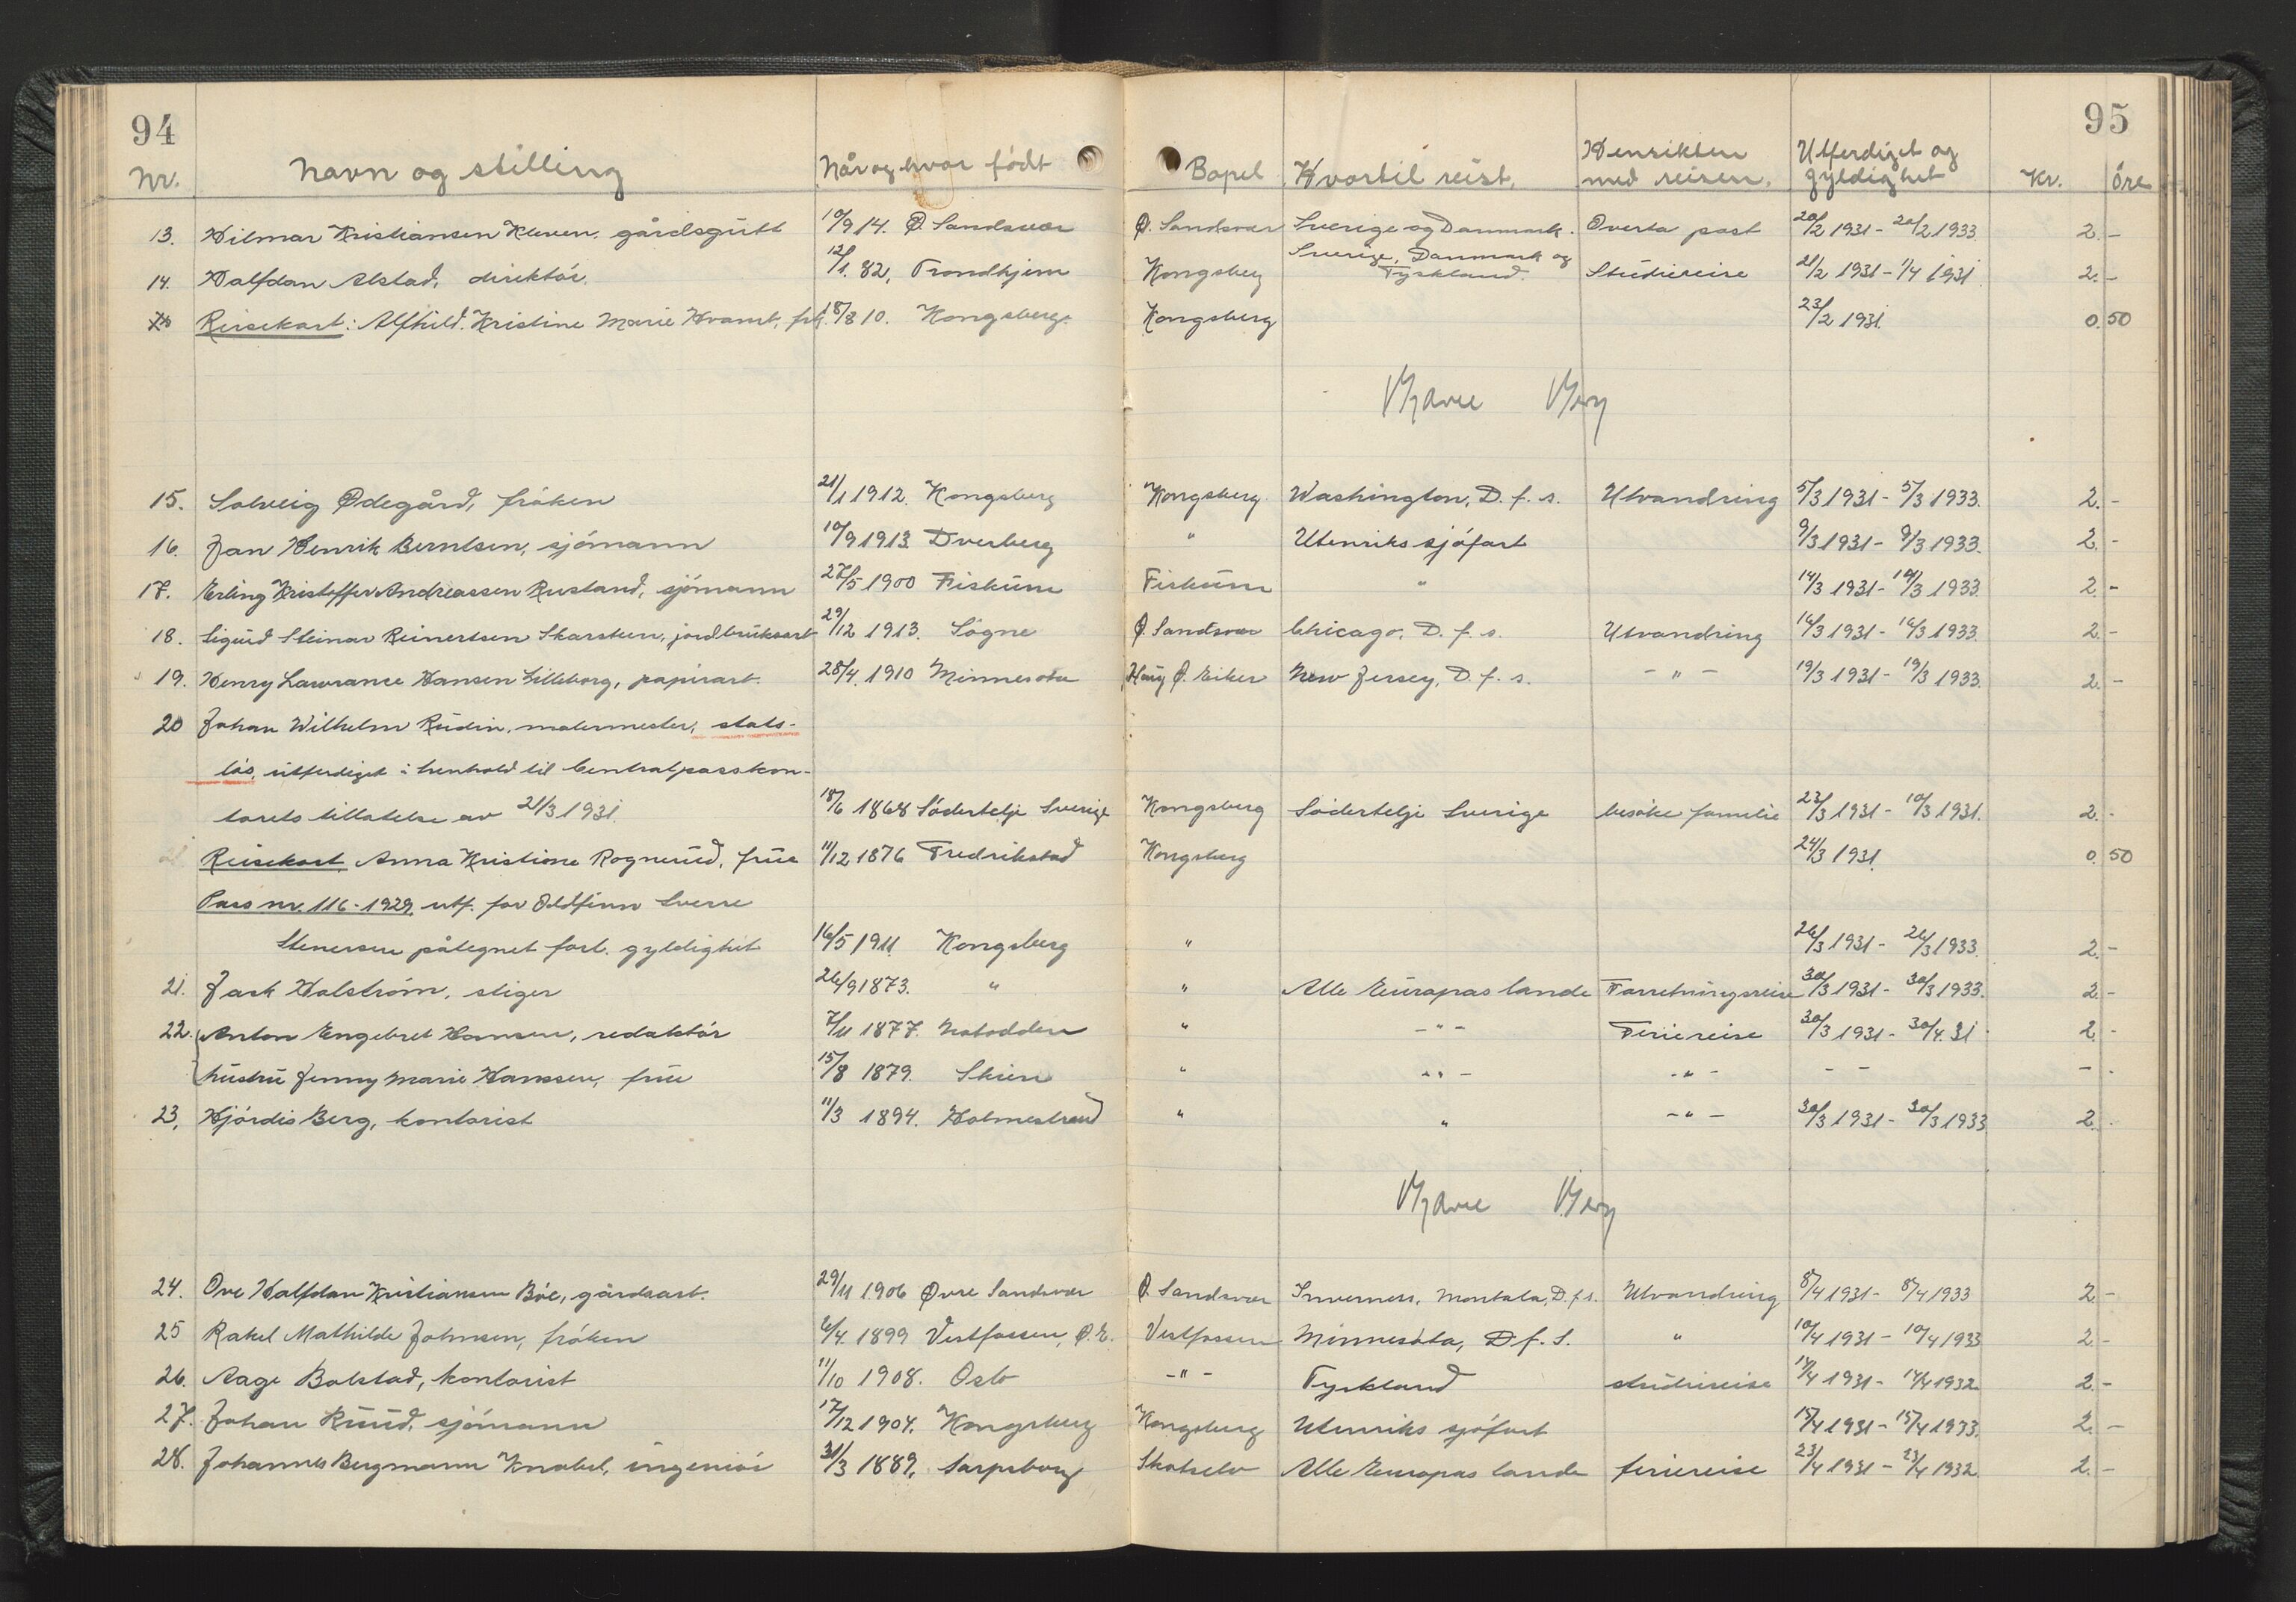 94
95
Nr. Navn og stilling Når og hvor født Bopel Hvortil reist. Hensikten med reisen. Utferdiget og gyldighet Kr. öre
13. Hilmar Kristiansen Kleven, gårdsgutt 10/9 14. Ø. Sandsvær Ø. Sandsvær Sverige og Danmark. Overta post 20/2 1931 - 20/2 1933. 2. -
14. Halfdan Alstad, direktör. 12/1. 82, Trondhjem Kongsberg Sverige, Danmark og Tyskland. Studiereise 21/2 1931 - 1/4 1931. 2. -
Reisekort: Alfhild Kristine Marie Kvamt, frk. 18/8 10. Kongsberg. Kongsberg 23/2 1931. 0. 50
15. Solveig Ødegård, fröken 21/1 1912. Kongsberg Kongsberg Washington, D. f. s. Utvandring 5/3 1931 - 5/3 1933. 2. -
16. Jan Henrik Berntsen, sjömann 10/9 1913 Dverberg " Utenriks sjöfart 9/3 1931 - 9/3 1933. 2. -
17. Erling Kristoffer Andreassen Rustand, sjömann 27/5 1900 Fiskum Fiskum " 14/3 1931 - 14/3 1933. 2. -
18. Sigurd Steinar Reinertsen Skarsten, jordbruksarb 29/12 1913. Sögne Ø. Sandsvær Chicago, D. f. s. Utvandring 16/3 1931 - 16/3 1933. 2. -
19. Henry Lawrance Hansen Lilleborg, papirarb. 28/4. 1910 Minnesota Haug Ø. Eiker New Jersey, D. f. s. - " - 19/3 1931 - 19/3 1933. 2. -
20 Johan Wilhelm Rudin, malermester, stats-
lös, utferdiget i henhold til Centralpasskon-
torets tillatelse av 21/3 1931. 18/6 1868 Södertelje Sverige Kongsberg Södertelje Sverige besöke familie 23/3 1931 - 10/3 1931. 2. -
Reisekort Anna Kristine Rognerud, frue 11/12 1876 Fredrikstad Kongsberg 24/3 1931. 0. 50
Pass nr. 116 - 1929, utf. for Oddfinn Sverre
Stenersen påtegnet forl. gyldighet 16/5 1911. Kongsberg " 26/3 1931 - 26/3 1933. 2. -
21. Jack Holström, stiger 26/9 1873. " " Alle Europas lande Forretningsreise 30/3 1931 - 30/3 1933. 2. -
22. Anton Engebret Hansen, redaktör 7/11 1877. Notodden " - " - Feriereise 30/3 1931 - 30/4. 31 2. -
hustru Jenny Marie Hanssen, frue 15/8 1879. Skien " - " - - " - - - - -
23. Hjördis Berg, kontorist 11/3 1894. Holmestrand " " - " - 30/3 1931 - 30/3 1933 2. -
24. Ove Halfdan Kristiansen Böe, gårdsarb. 29/11 1906 Øvre Sandsvær Ø. Sandsvær Inverness, Montala, D. f. s. Utvandring 8/4 1931 - 8/4 1933 2. -
25 Rakel Mathilde Johnsen, fröken 6/4. 1899 Vestfossen, Ø. E. Vestfossen Minnesota, D. f. S. " 10/4 1931 - 10/4 1933 2. -
26. Aage Bolstad, kontorist 11/10 1908. Oslo - " - Tyskland studiereise 14/4 1931 - 14/4 1932. 2. -
27. Johan Ruud, sjömann 17/12 1904. Kongsberg Kongsberg Utenriks sjöfart 15/4 1931 - 15/4 1933. 2. -
28. Johannes Bergmann Knabel, ingeniör 31/3 1889, Sarpsborg Skotselv Alle Europas lande feriereise 23/4 1931 - 23/4 1932. 2. -